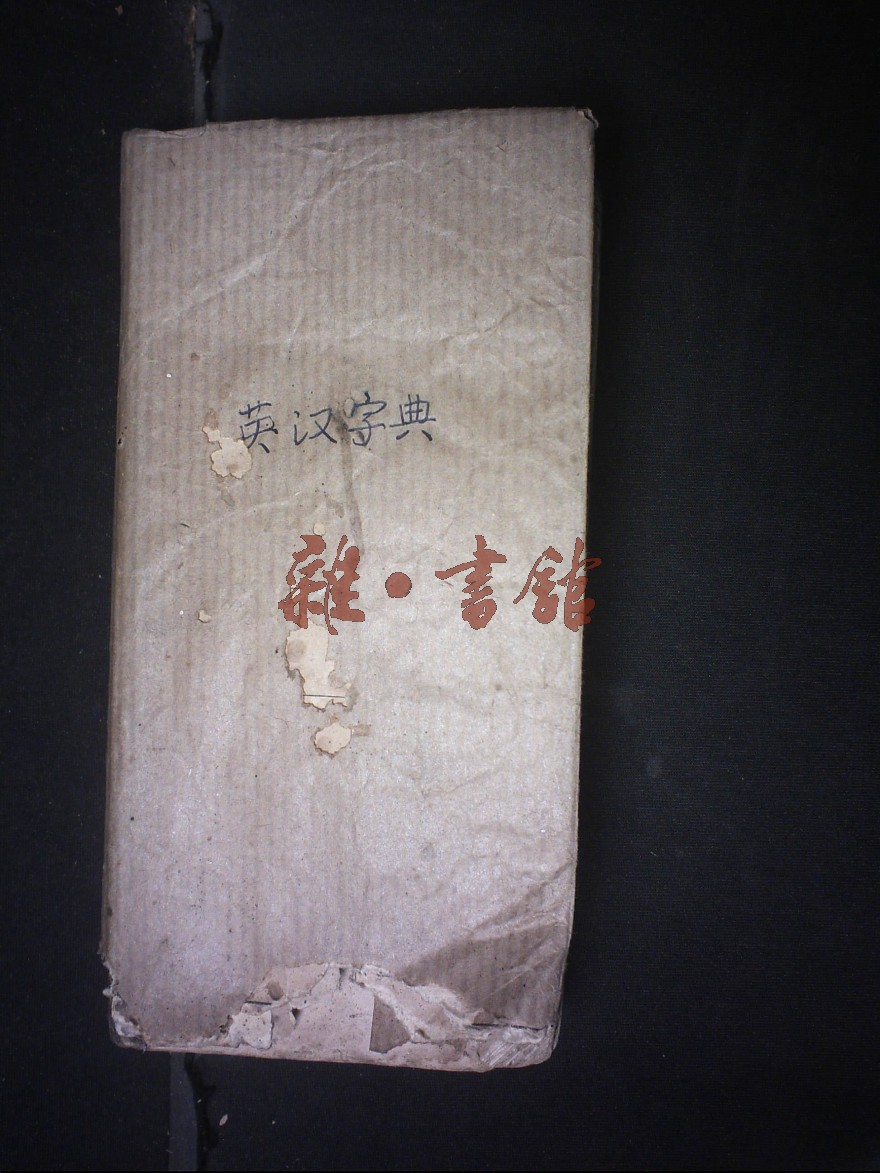 英汉字典
雜·書館